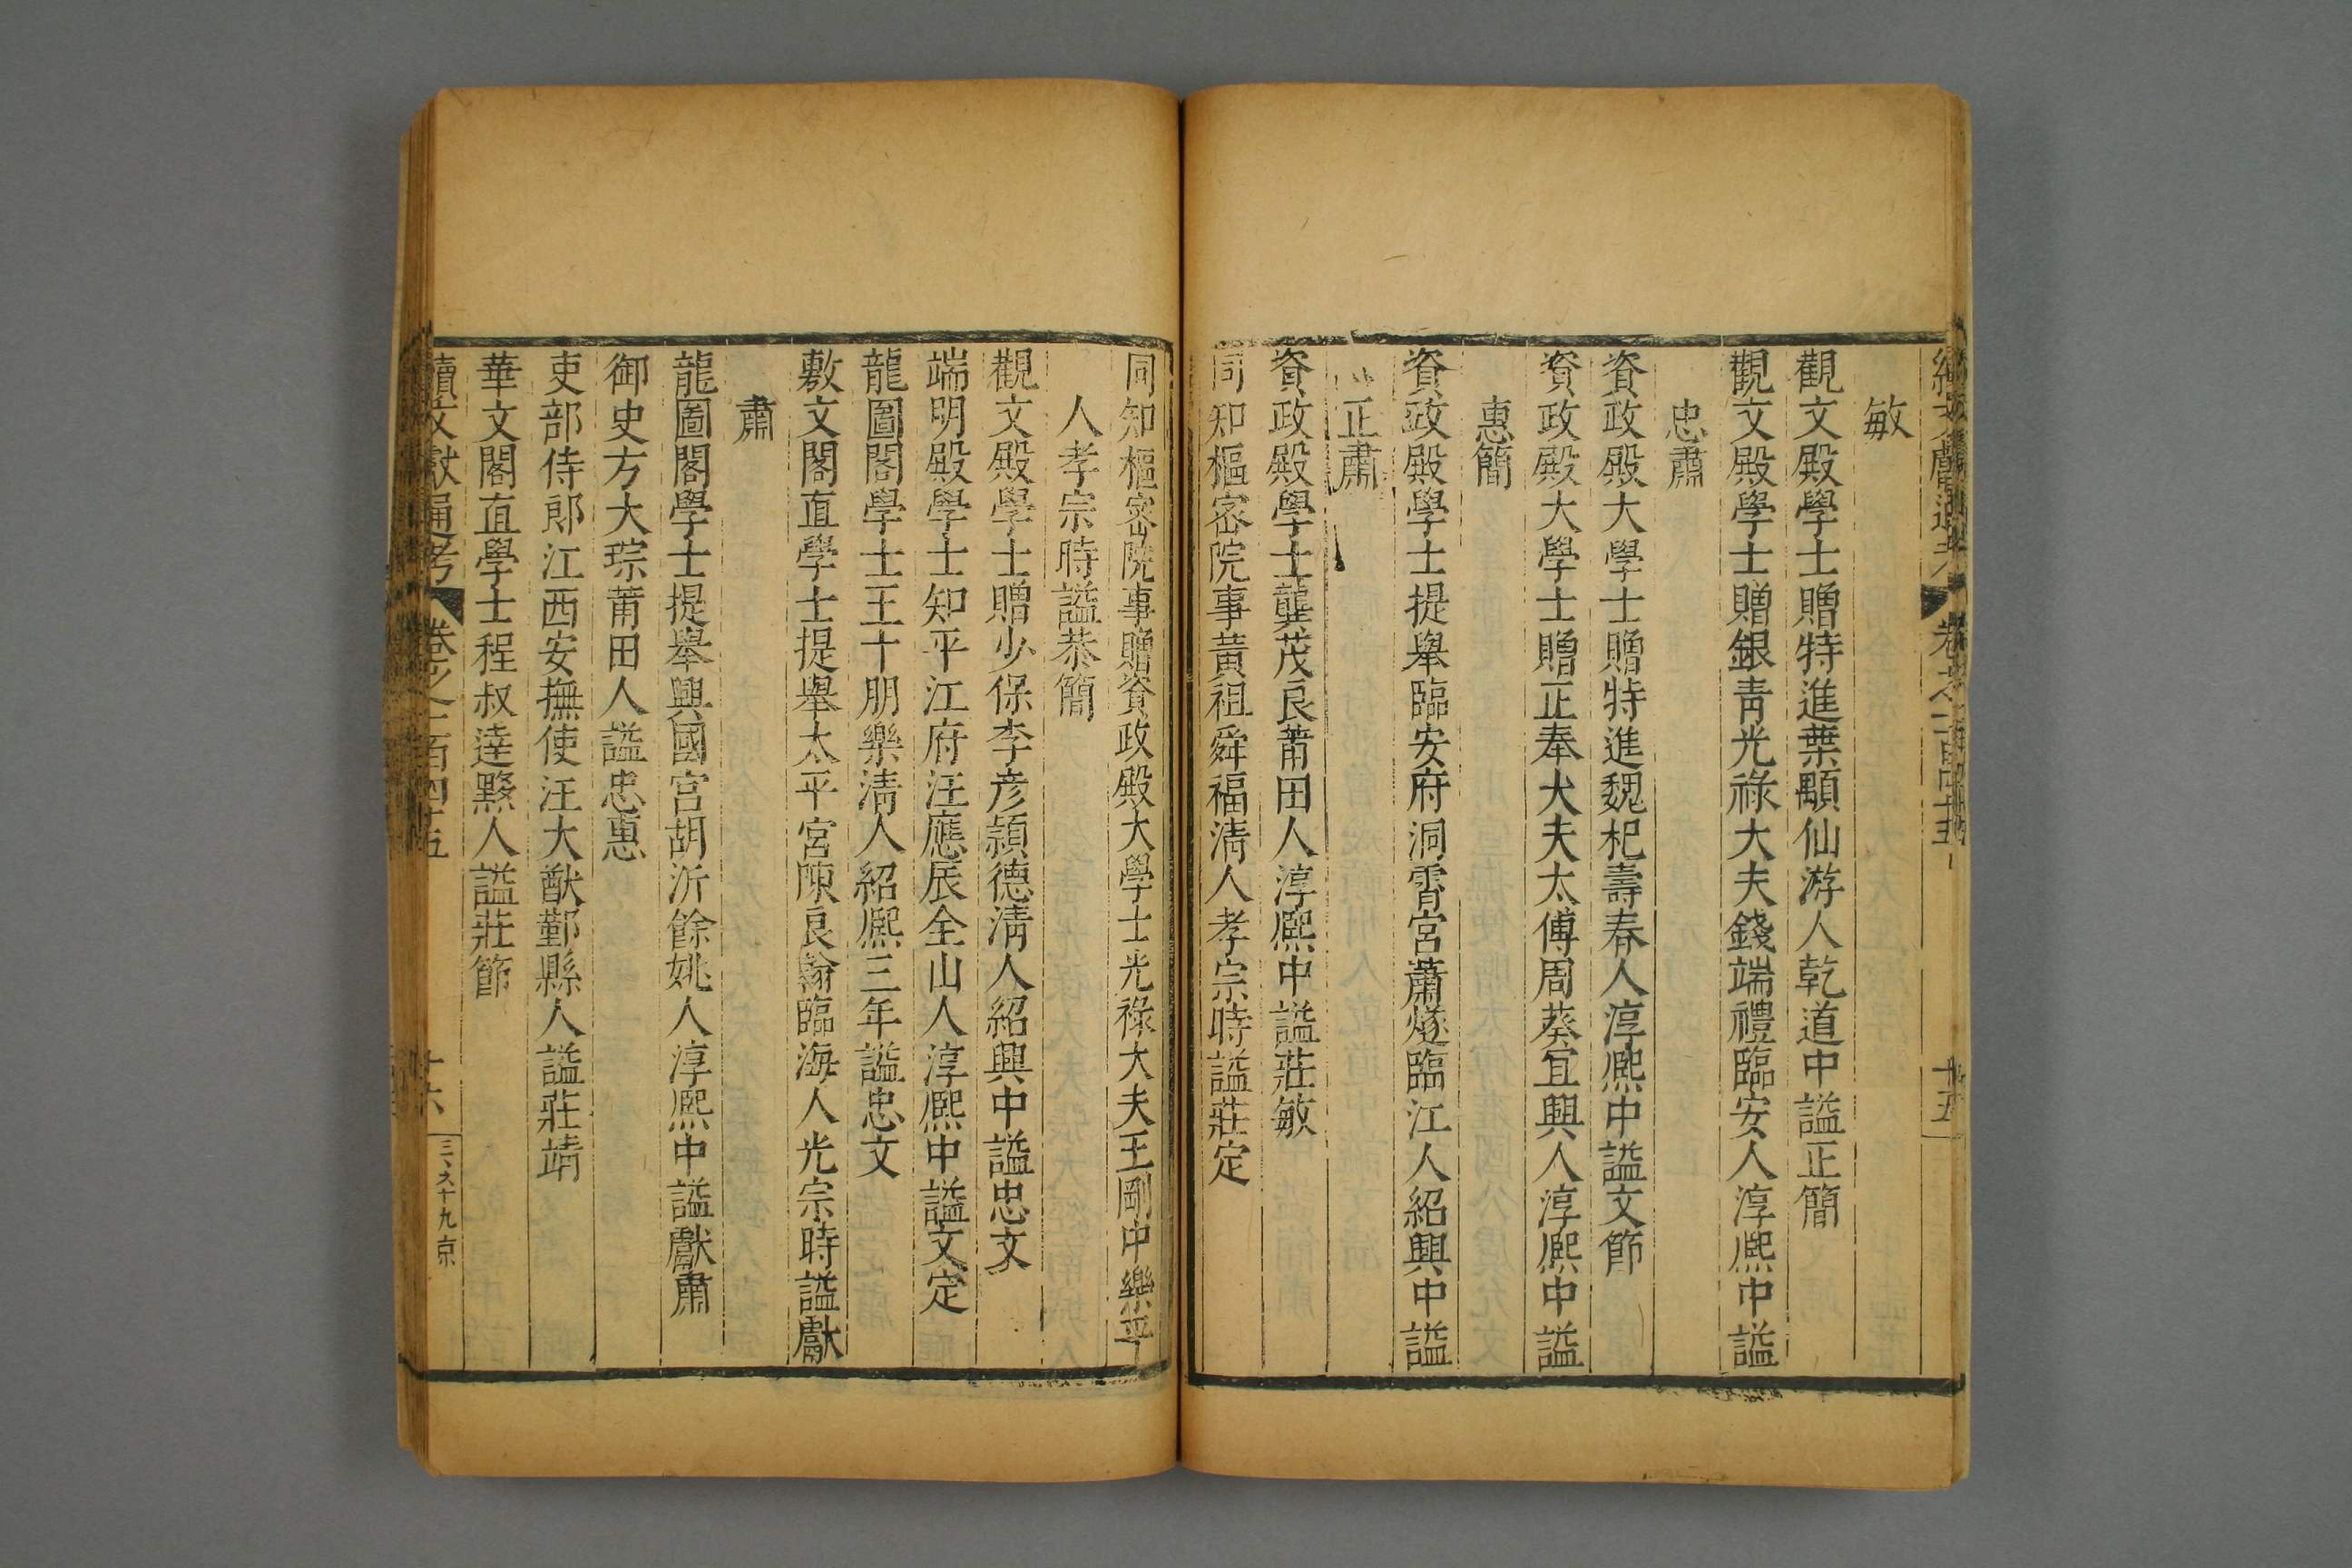 續文獻通考
卷之一百四十五
十五
敏
觀文殿學士贈特進葉顒仙游人乾道中謚正簡
觀文殿學士贈銀青光祿大夫錢端禮臨安人淳熙中謚
忠肅
資政殿大學士贈特進魏杞壽春人淳熙中謚文節
資政殿大學士贈正奉大夫太傅周葵宜興人淳熙中謚
惠簡
資政殿學士提舉臨安府洞霄宮蕭燧臨江人紹興中謚
正肅
資政殿學士龔茂良莆田人淳熙中謚莊敏
同知樞密院事黃祖舜福清人孝宗時謚莊定
同知樞密院事贈資政殿大學士光祿大夫王剛中樂平
人孝宗時謚恭簡
觀文殿學士贈少保李彦頴德清人紹興中謚忠文
端明殿學士知平江府汪應辰全山人淳熙中謚文定
龍圖閣學士王十朋樂清人紹熙三年謚忠文
敷文閣直學士提舉太平宮陳良翰臨海人光宗時謚獻
肅
龍圖閣學士提舉興國宮胡沂餘姚人淳熙中謚獻肅
御史方大琮莆田人謚忠惠
吏部侍郎江西安撫使汪大猷鄞縣人謚莊靖
華文閣直學士程叔逹黟人謚莊節
續文獻通考
卷之一百四十五
十六
三六十九京